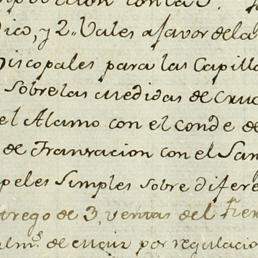 dico, y 2.. Vales a favor de la
Discopales para las Capilla
Sobre las medidas de Cruc
el Alamo con el conde de
de Transacion con el San
peles Simples sobre difere
trego de 3, ventas del
de por regulacio